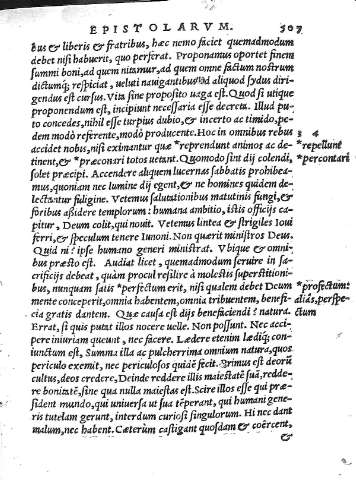 EPISTOLARVM. 307
bus & liberis & fratribus, hæc nemo faciet quemadmodum
debet nisi habuerit, quo perferat. Proponamus oportet finem
summi boni, ad quem nitamur, ad quem omne factum nostrum
dictumq; respiciat, ueluti nauigantibus ad aliquod sydus diri-
gendus est cursus. Vita sine proposito uaga est. Quod si utique
proponendum est, incipiunt necessaria esse decreta. Illud pu-
to concedes, nihil esse turpius dubio, & incerto ac timido, pe-
dem modò referente, modò producente. Hoc in omnibus rebus
accidet nobis, nisi eximantur quæ *reprendunt animos ac de-
tinent, & *præconari totos uetant. Quomodo sint dij colendi,
solet præcipi. Accendere aliquem lucernas sabbatis prohibea-
mus, quoniam nec lumine dij egent, & ne homines quidem de-
lectantur fuligine. Vetemus salutationibus matutinis fungi, &
foribus assidere templorum: humana ambitio, istis officijs ca-
pitur, Deum colit, qui nouit. Vetemus lintea & strigiles Ioui
ferri, & speculum tenere Iunoni. Non quærit ministros Deus.
Quid ni? ipse humano generi ministrat. Vbique & omni-
bus præsto est. Audiat licet, quemadmodum seruire in sa-
crificijs debeat, quàm procul resilire à molestis superstitioni-
bus, nunquam satis *perfectum erit, nisi qualem debet Deum
mente conceperit, omnia habentem, omnia tribuentem, benefi-
cia gratis dantem. Quæ causa est dijs beneficiendi? natura.
Errat, si quis putat illos nocere uelle. Non possunt. Nec acci-
pere iniuriam queunt, nec facere. Lædere etenim lædiq; con-
iunctum est, Summa illa ac pulcherrima omnium natura, quos
periculo exemit, nec periculosos quidē fecit. Primus est deorū
cultus, deos credere, Deinde reddere illis maiestatē suā, redde-
re bonitatē, sine qua nulla maiestas est. Scire illos esse qui præ-
sident mundo, qui uniuersa ut sua tēperant, qui humani gene-
ris tutelam gerunt, interdum curiosi singulorum. Hi nec dant
malum, nec habent. Cæterùm castigant quosdam & coërcent,
&
3 4
*repellunt
*percontari
*profectum:
aliâs, perspe-
ctum